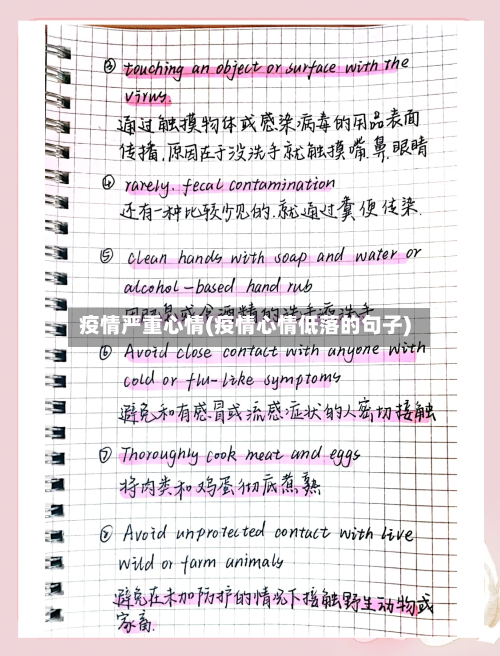 ③ touching an object or surface with the
virus.
通过触摸物体或感染病毒的用品表面
传播,原因在于没洗手就触摸嘴.鼻.眼睛
④ rarely. fecal contamination
还有一种比较少见的.就通过粪便传染.
⑤ clean hands with soap and water or
alcohol-based hand rub
用肥皂或含酒精的洗手液洗手
疫情严重心情(疫情心情低落的句子)
⑥ Avoid close contact with anyone with
cold or flu-like symptoms
避免和有感冒或流感症状的人密切接触
⑦ Thoroughly cook meat and eggs
将肉类和鸡蛋彻底煮熟
⑧ Avoid unprotected contact with live
wild or farm animals
避免在未加防护的情况下接触野生动物或
家畜.